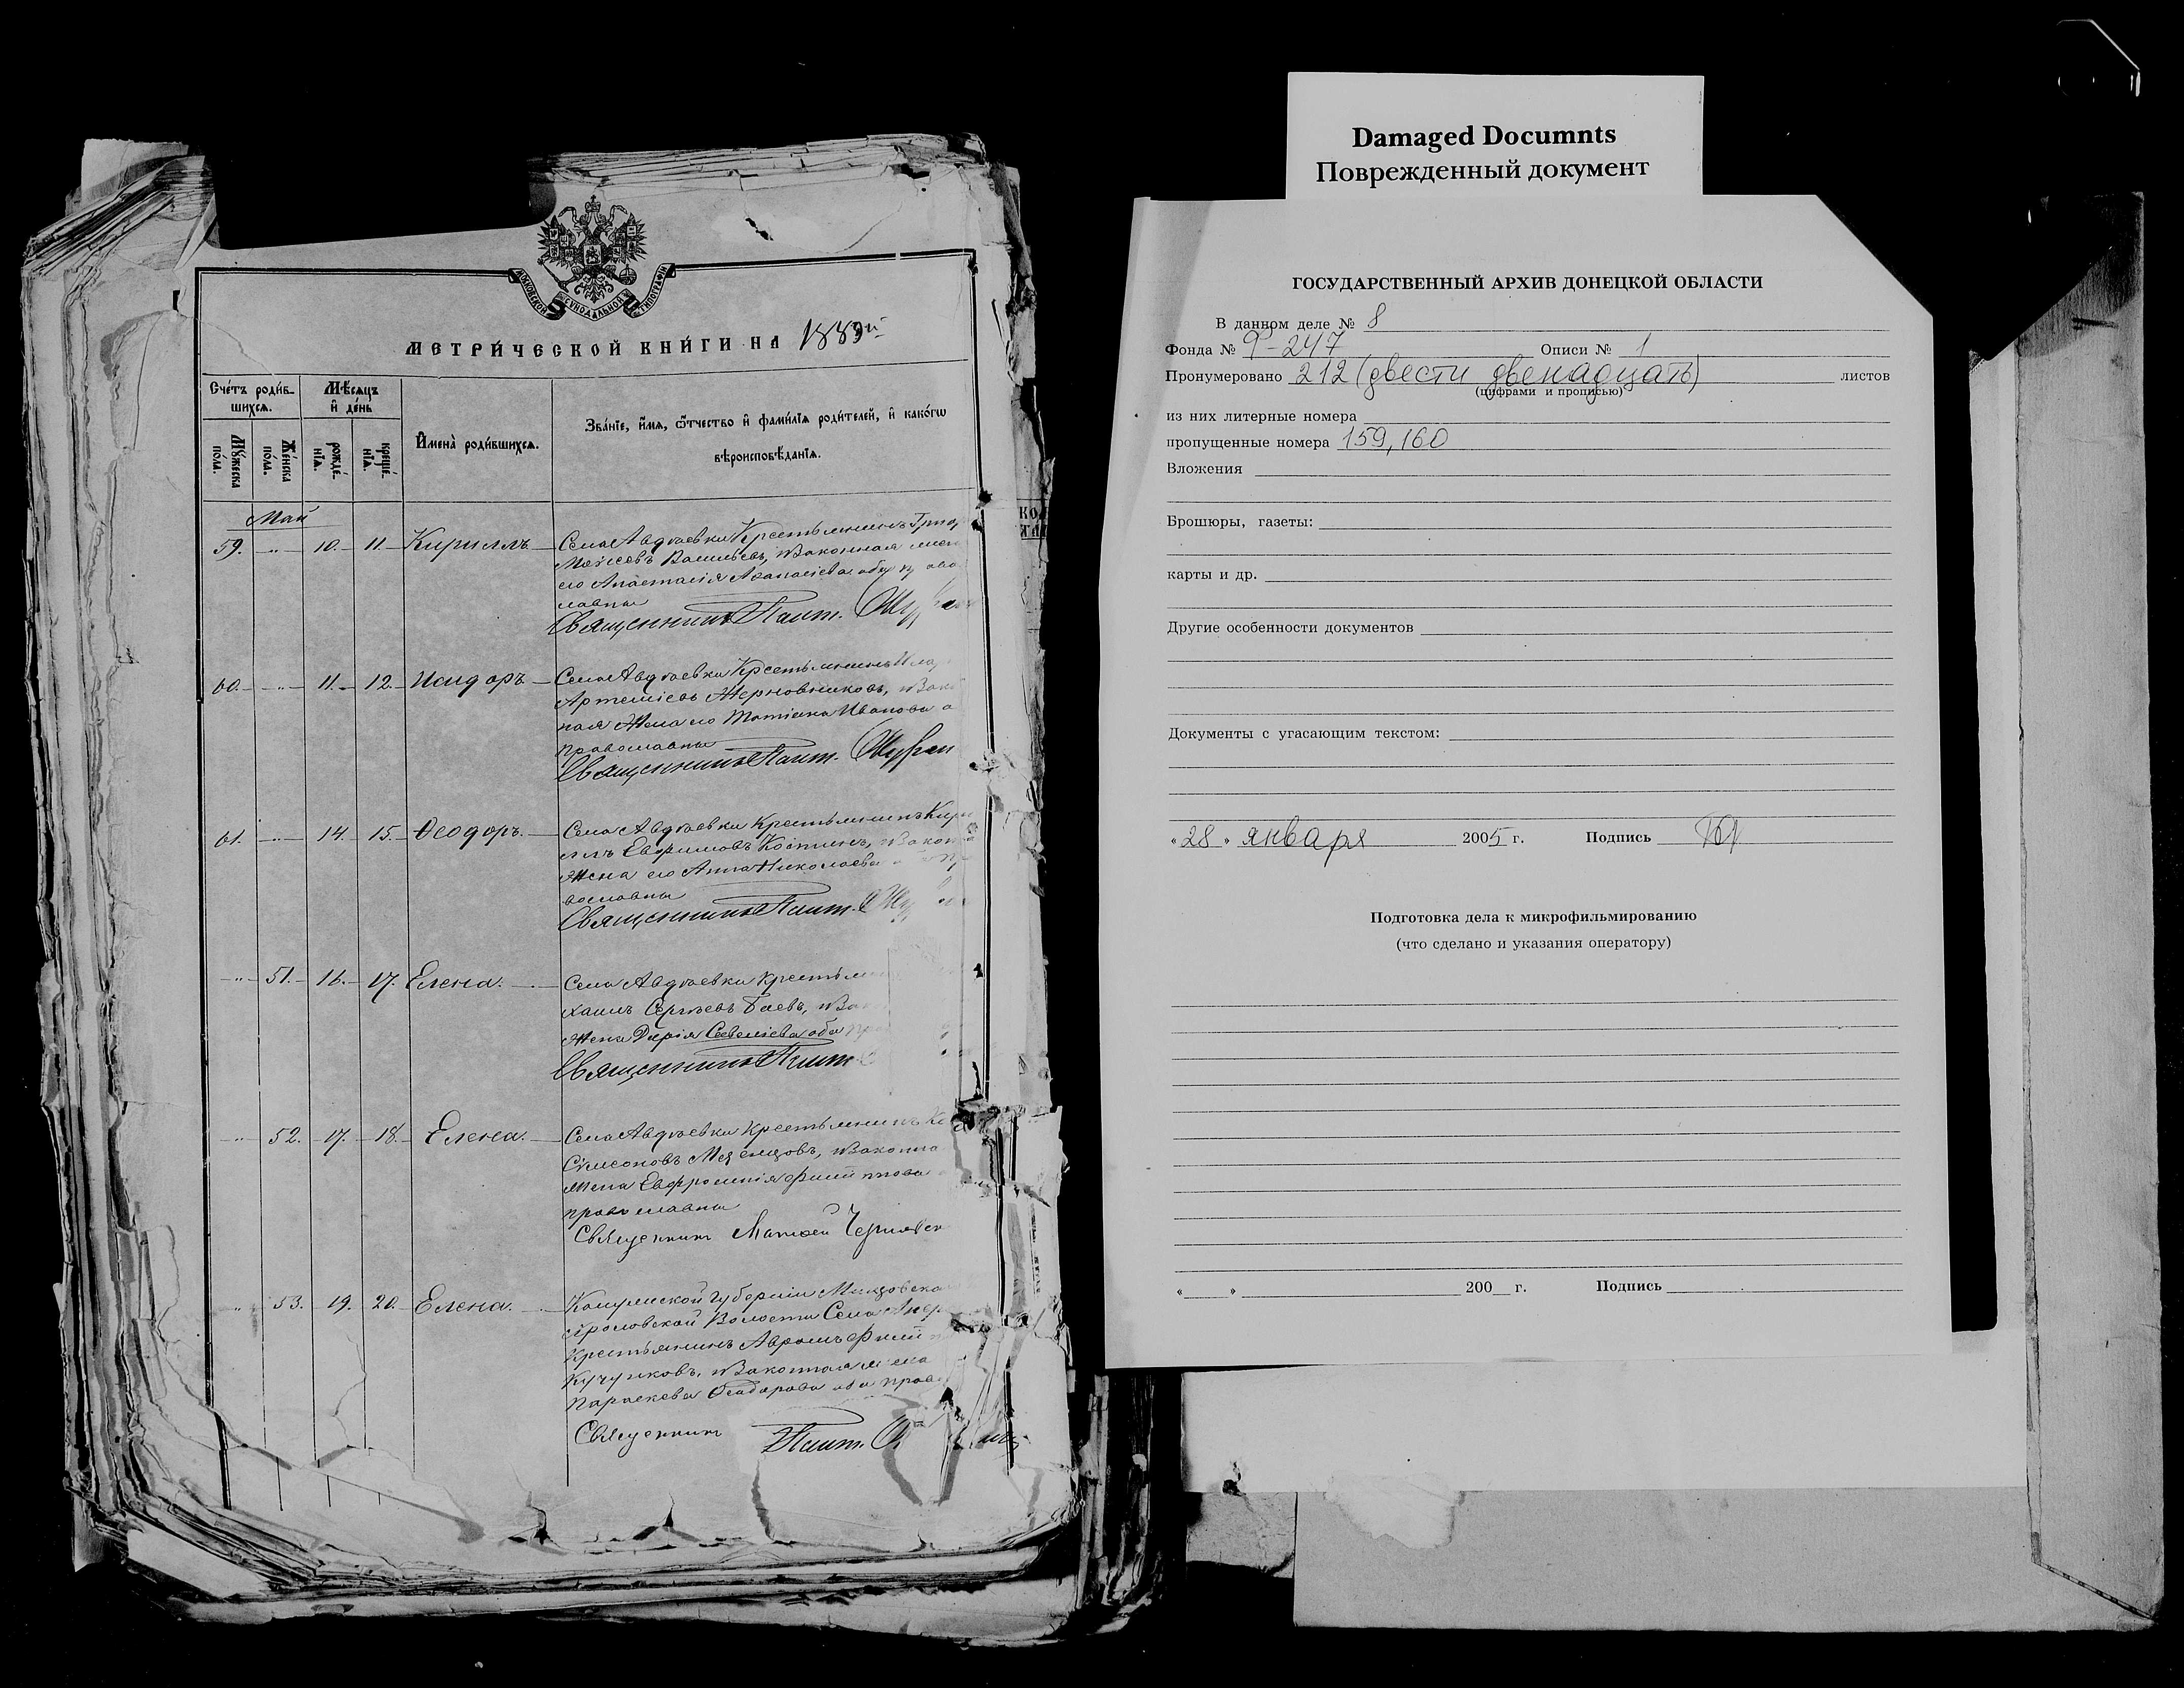 МОСКОВСКОЙ СѴНОДАЛЬНОЙ ТИПОГРАФІИ
МЕТРИ́ЧЕСКОЙ КНИ́ГИ НА 1883й
Сче́тъ роди́в-
шихсѧ.
Мѣ́сѧцъ
и҆ де́нь
Мꙋ́жеска
по́ла.
Же́нска
по́ла.
рожде́-
нїѧ.
креще́-
нїѧ.
И҆мена̀ роди́вшихсѧ.
Зва́нїе, и҆́мѧ, ѿтчество и҆ фами́лїѧ роди́телей, и҆ како́гѡ
вѣроисповѣ́данїѧ.
Май
59. 10. 11. Кириллъ Села Авдѣевки Крестьянинъ Григор
Моѵсеевъ Васильевъ, и законная жен
его Анастасія Аѳанасіева оба право
славны
Священникъ Памт.
60. 11. 12. Исидоръ Села Авдѣевки Крестьянинъ
Артеміевъ Жерновниковъ, и Закон
ная Жена его Татіана Иванова о
православны
Священникъ Памт.
61. 14. 15. Ѳеодоръ. Села Авдѣевки Крестьянинъ Кири
ллъ Евфимовъ Костинъ, и Законна
Жена его Анна Николаева пра
вославны
Священникъ Памт.
51. 16. 17. Елена. Села Авдѣевки Крестьян
хаилъ Сергѣевъ Баевъ, и Зак
Жена Дарія Савеліева оба пр
Священникъ Памт.
52. 17. 18. Елена. Села Авдѣевки Крестьянинъ
Сѵмеоновъ Мезенцовъ, и Законна
Жена Евфросинія Филиппова
православны
Священник Матѳей Чернявск
53. 19. 20. Елена. Губерніи
Волости Села
Крестьянинъ Аврамъ Филип
и Законная жена
Параскева Ѳеодорова оба прав
Священник Памт.
Damaged Documnts
Поврежденный документ
ГОСУДАРСТВЕННЫЙ АРХИВ ДОНЕЦКОЙ ОБЛАСТИ
В данном деле № 8
Фонда № Ф-247 Описи № 1
Пронумеровано 212 (двести двенадцать) листов
(цифрами и прописью)
из них литерные номера
пропущенные номера 159, 160
Вложения
Брошюры, газеты:
карты и др.
Другие особенности документов
Документы с угасающим текстом:
«28» января 2005 г. Подпись
Подготовка дела к микрофильмированию
(что сделано и указания оператору)
« » 200 г. Подпись